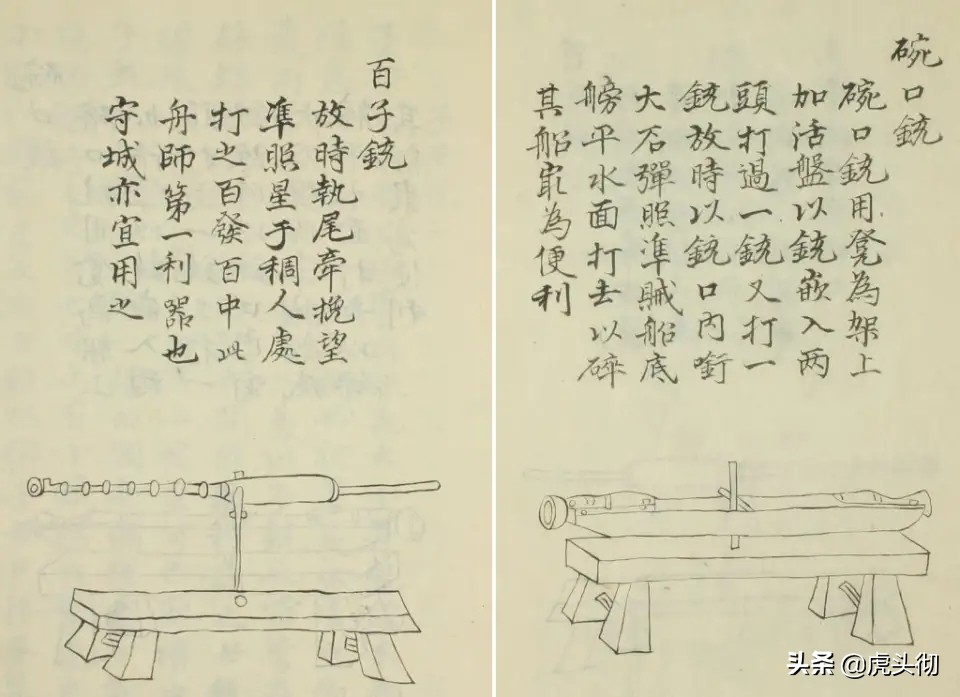 碗口銃
碗口銃用凳為架上
加活盤以銃嵌入两
頭打過一銃又打一
銃放時以銃口內啣
大石彈照準賊船底
艕平水面打去以碎
其船㝡為便利
百子銃
放時執尾牽挽望
準照星于稠人處
打之百發百中此
舟師第一利器也
守城亦宜用之
头条 @虎头彻